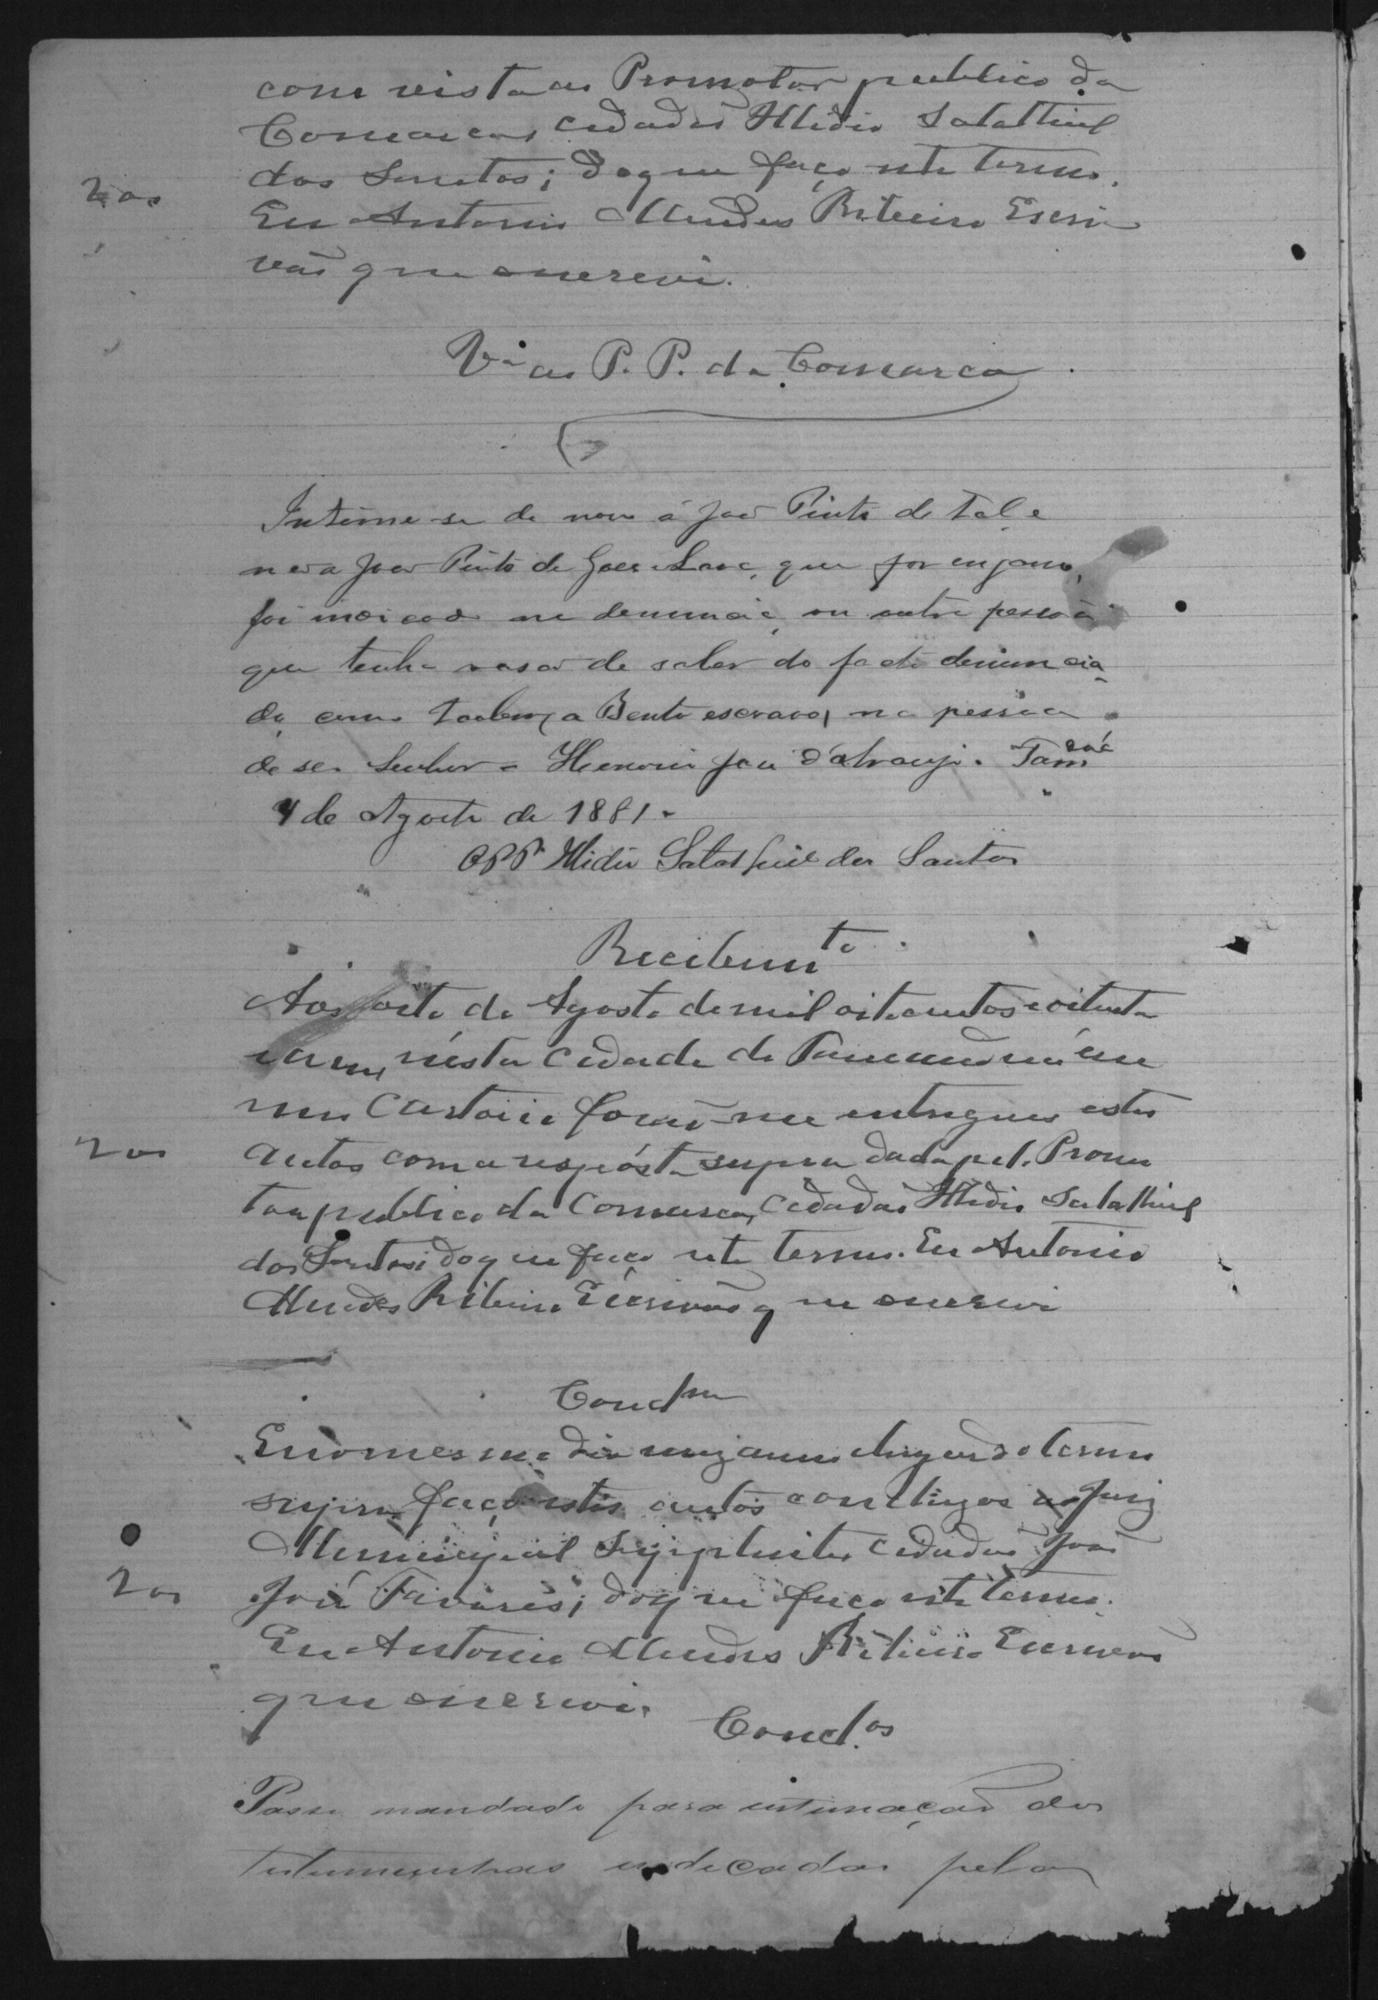 com vista ao Promotor publico da
Comarca, cidadão Hlidio Salathiel
dos Santos; do que faço este termo.
200
Eu Antonio Mendes Ribeiro Escri
vão que escrevi.
Vª ao P. P. da Comarca
Intime-se de novo á João Pinto de tal e
não a João Pinto de Goes, que por engano,
foi indicado na denuncia, ou outra pessoa
que tenha rasão de saber do facto denuncia
do, como tambem a Bento escravo, na pessoa
de seo Senhor - João d'Araujo. Tamᵈᵃᵉ
4 de Agosto de 1881.
O P P Hlidio Salathiel dos Santos
Recebimᵗᵒ
Aos oito de Agosto de mil oitocentos e oitenta
e um, nésta cidade de Tamanduá em
meu Cartorio forão-me entregues estes
200
autos com a respósta supra dada pelo Promo
tor publico da Comarca, cidadão Hlidio Salathiel
dos Santos; do que faço este termo. Eu Antonio
Mendes Ribeiro Escrivão que escrevi
Conclᵐ
E no mesmo dia mez anno do termo
supra faço estes autos conclusos ao Juiz
Municipal Supplente cidadão João
200
José Tavares; do que faço este termo.
Eu Antonio Mendes Ribeiro Escrivão
que escrevi.
Concl.ᵒˢ
Passe mandado para intimação das
testemunhas indicadas pelo